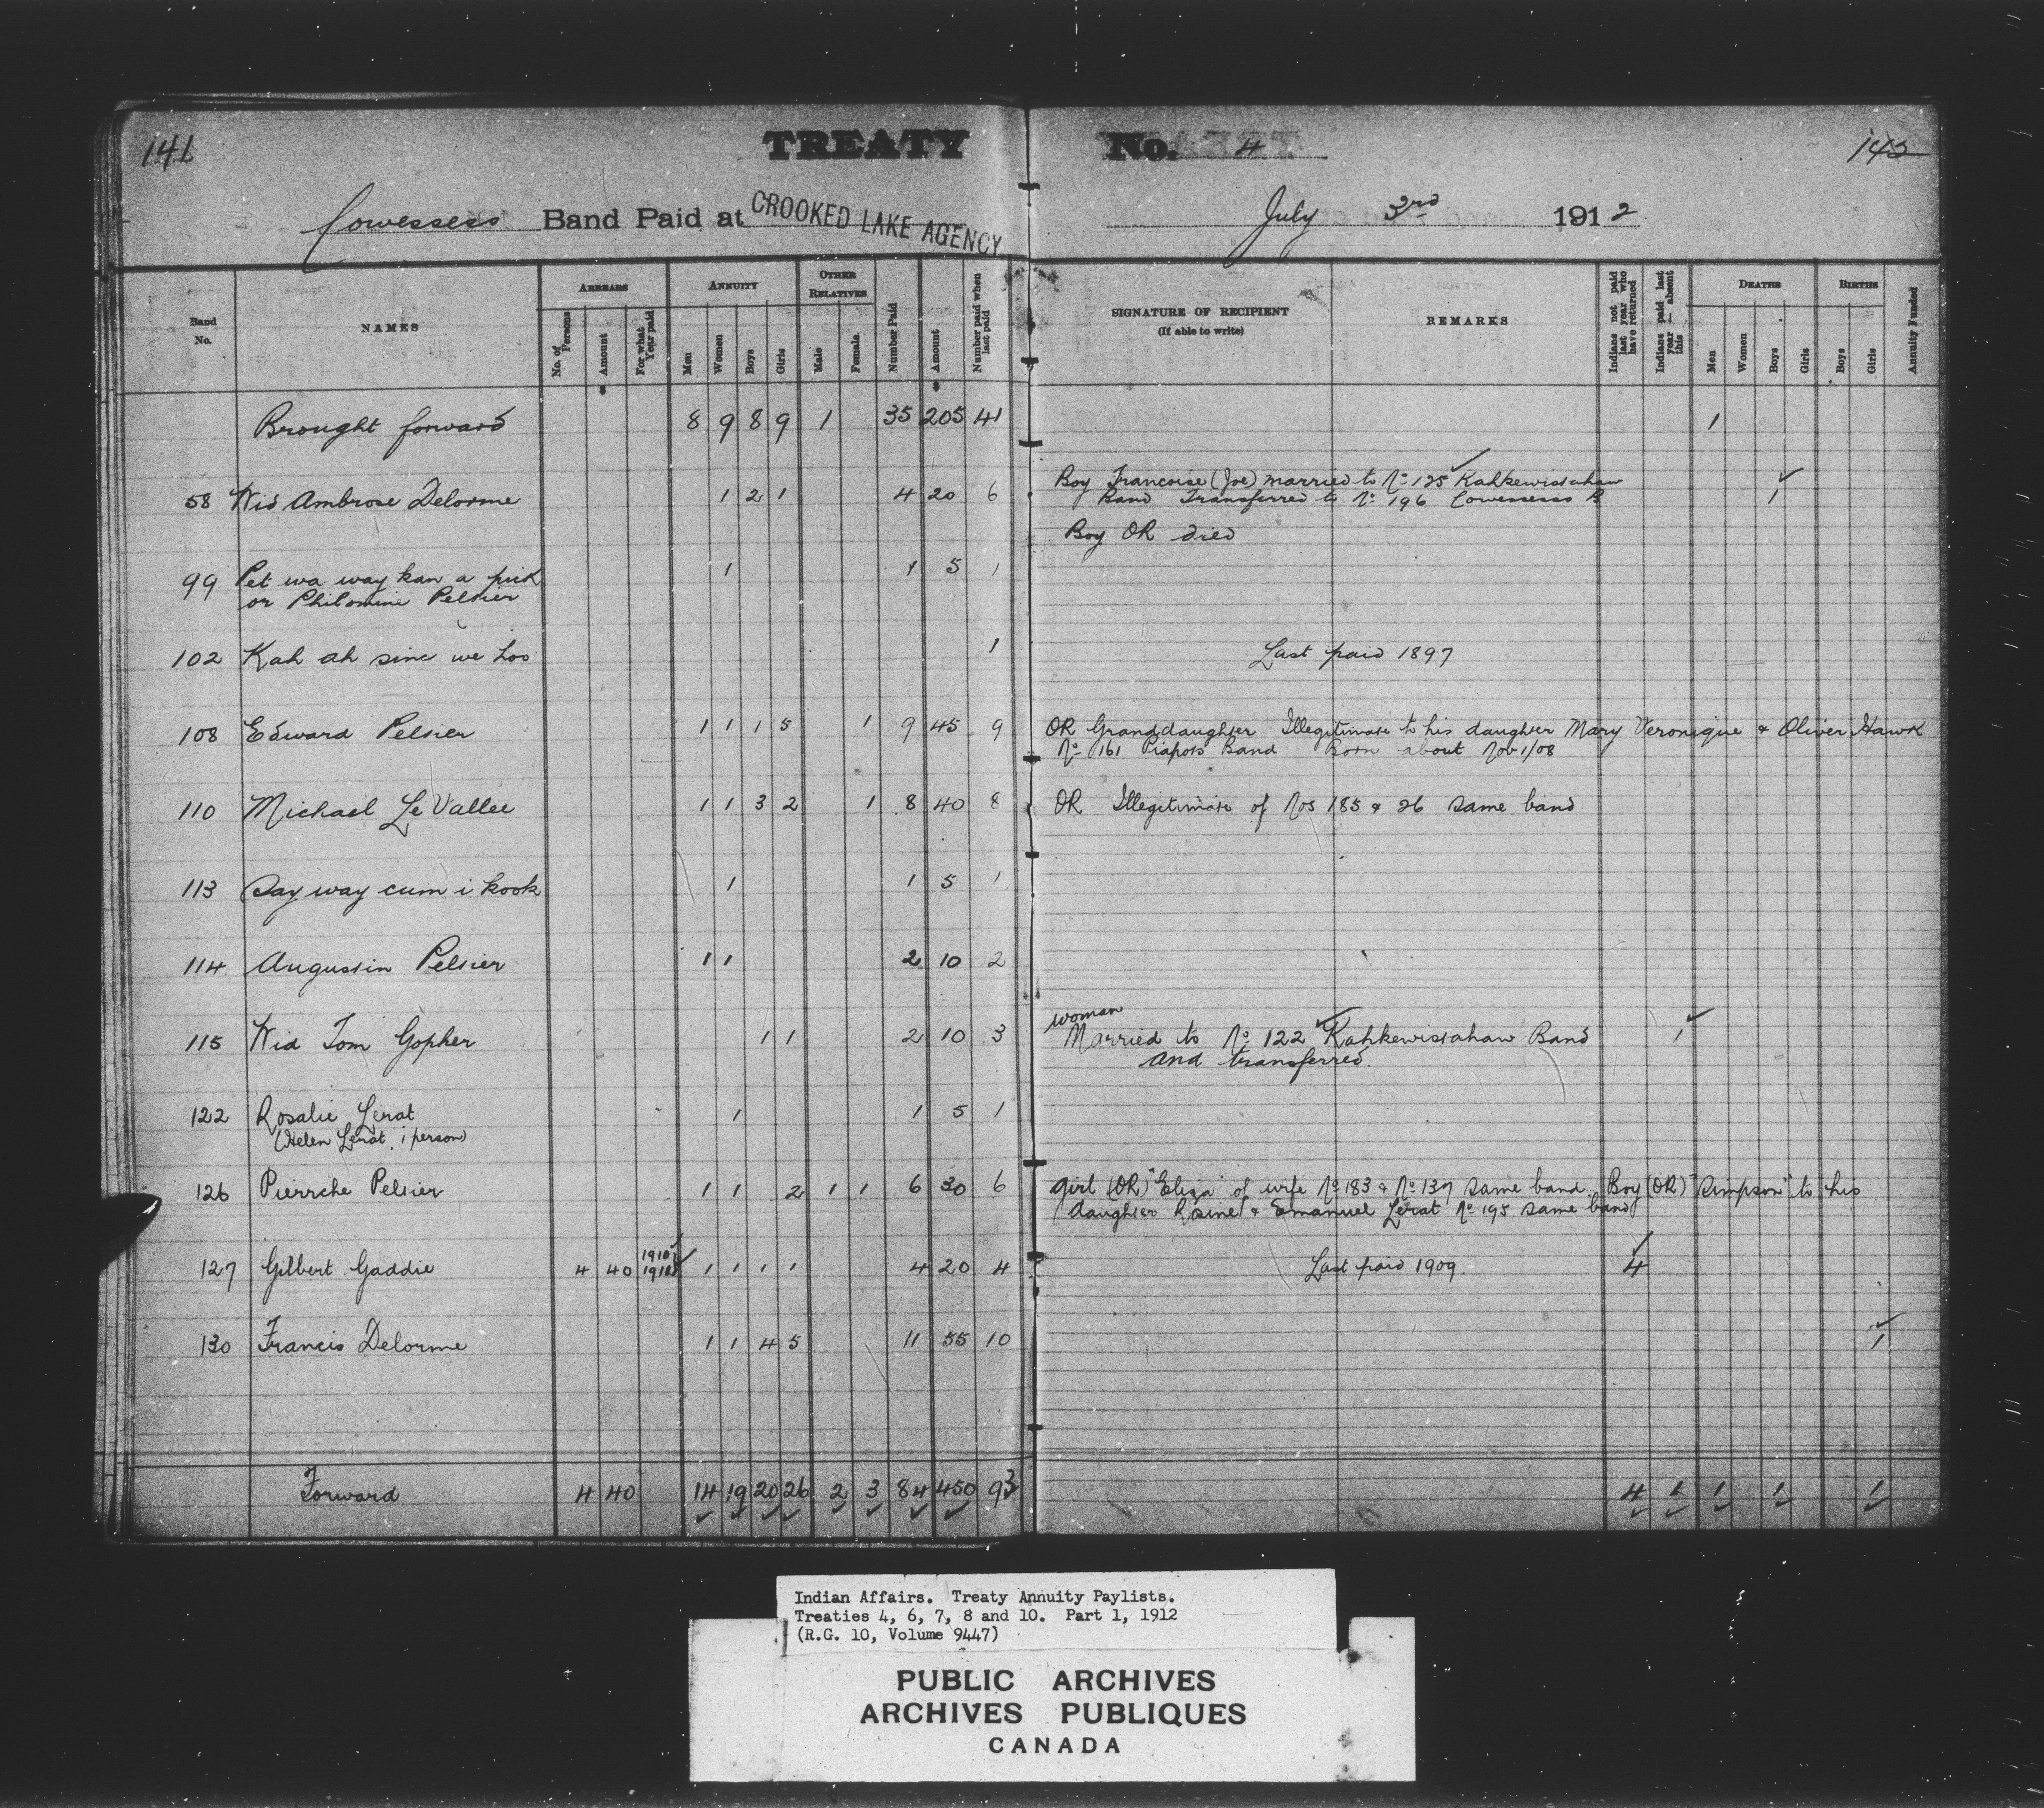 141
TREATY No. 4
Cowessess Band Paid at CROOKED LAKE AGENCY July 3rd 1912
Band No. NAMES ARREARS No. of Persons Amount For what Year paid ANNUITY Men Women Boys Girls OTHER RELATIVES Male Female Number Paid Amount Number paid when last paid SIGNATURE OF RECIPIENT (If able to write) REMARKS Indians not paid last year who have returned Indians paid last year — absent this DEATHS Men Women Boys Girls BIRTHS Boys Girls Annuity Funded
Brought forward 8 9 8 9 1 35 205 41 1
58 Wid Ambrose Delorme 1 2 1 4 20 6 Boy Francoise (Joe) married to No 125 Kahkewistahaw 1
Band Transferred to No 196 Cowessess B
Boy OR died
99 Pet wa way kan a pick 1 1 5 1
or Philomine Pelsier
102 Kah ah sine we hoo 1 Last paid 1897
108 Edward Pelsier 1 1 1 5 1 9 45 9 OR Granddaughter Illegitimate to his daughter Mary Veronique & Oliver Hawk
No 161 Piapots Band Born about Nov 1/08
110 Michael Le Vallee 1 1 3 2 1 8 40 8 OR Illegitimate of Nos 185 & 26 same band
113 Say way cum i kook 1 1 5 1
114 Augustin Pelsier 1 1 2 10 2
115 Wid Tom Gopher 1 1 2 10 3 woman Married to No 122 Kahkewistahaw Band 1
and transferred.
122 Rosalie Lerat 1 1 5 1
(Helen Lerat. 1 person)
126 Pierrche Pelsier 1 1 2 1 1 6 30 6 Girl (OR) "Eliza" of wife No 183 & No 137 same band. Boy (OR) "Simpson" to his
daughter Rosine & Emanuel Lerat No 195 same band
127 Gilbert Gaddie 4 40 1910 1 1 1 1 4 20 4 Last paid 1909. 4
130 Francis Delorme 1 1 4 5 11 55 10 1
Forward 4 40 14 19 20 26 2 3 84 450 93 4 1 1 1 1
Indian Affairs. Treaty Annuity Paylists.
Treaties 4, 6, 7, 8 and 10. Part 1, 1912
(R.G. 10, Volume 9447)
PUBLIC ARCHIVES
ARCHIVES PUBLIQUES
CANADA